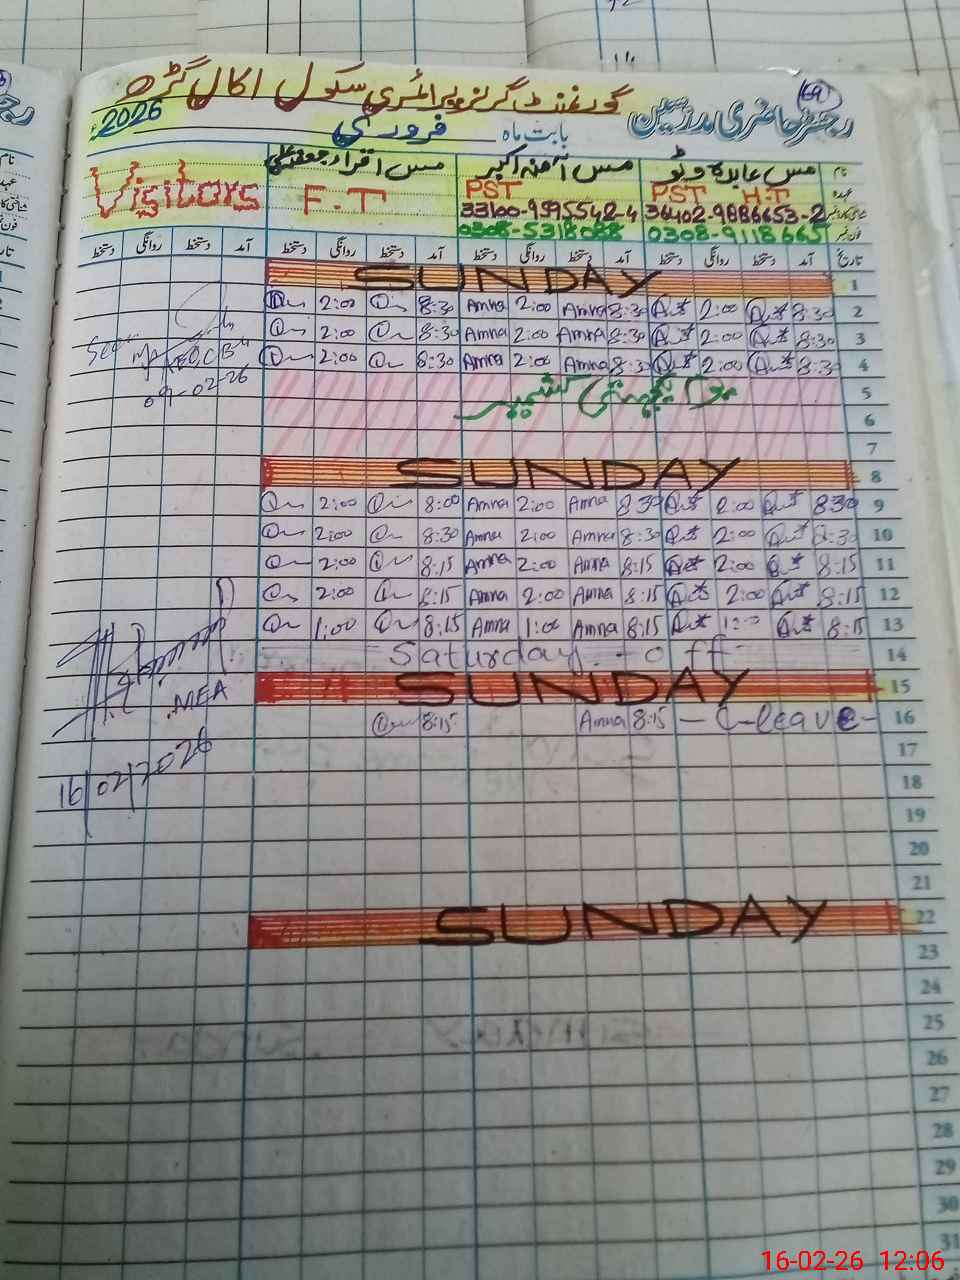 69
گورنمنٹ گرلز پرائمری سکول اکال گڑھ
رجسٹر حاضری مدرسین
بابت ماہ فروری 2026
نام مس عابدہ وٹو مس آمنہ اکبر مس اقرار Visitors
عہدہ PST H.T PST F.T
36402-9886653-2 33100-9595542-4
0308-9118665 0308-5318088
تاریخ آمد دستخط روانگی دستخط آمد دستخط روانگی دستخط آمد دستخط روانگی دستخط آمد دستخط روانگی دستخط
SUNDAY 1
2:00 8:30 Amna 2:00 Amna 8:30 2:00 8:30 2
2:00 8:30 Amna 2:00 Amna 8:30 2:00 8:30 3
2:00 8:30 Amna 2:00 Amna 8:30 2:00 8:30 4
09-02-26
یوم یکجہتی کشمیر 5
6
7
SUNDAY 8
2:00 8:00 Amna 2:00 Amna 8:30 2:00 8:30 9
2:00 8:30 Amna 2:00 Amna 8:30 2:00 8:30 10
2:00 8:15 Amna 2:00 Amna 8:15 2:00 8:15 11
2:00 8:15 Amna 2:00 Amna 8:15 2:00 8:15 12
1:00 8:15 Amna 1:00 Amna 8:15 8:15 13
Saturday off 14
SUNDAY 15
MEA
8:15 Amna 8:15 - C-leave - 16
16/02/2026
17
18
19
20
21
SUNDAY 22
23
24
25
26
27
28
29
30
31
16-02-26 12:06